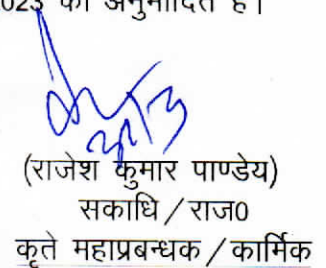 023 को अनुमोदित है।
(राजेश कुमार पाण्डेय)
सकाधि / राज0
कृते महाप्रबन्धक / कार्मिक